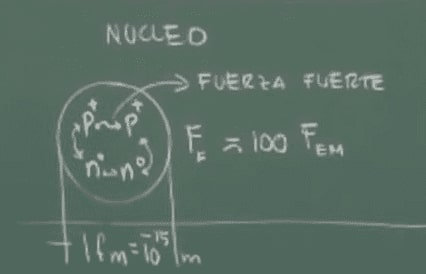 NUCLEO
FUERZA FUERTE
p⁺ p⁺
n⁰ n⁰
F_F ≈ 100 F_EM
1fm = 10⁻¹⁵ m